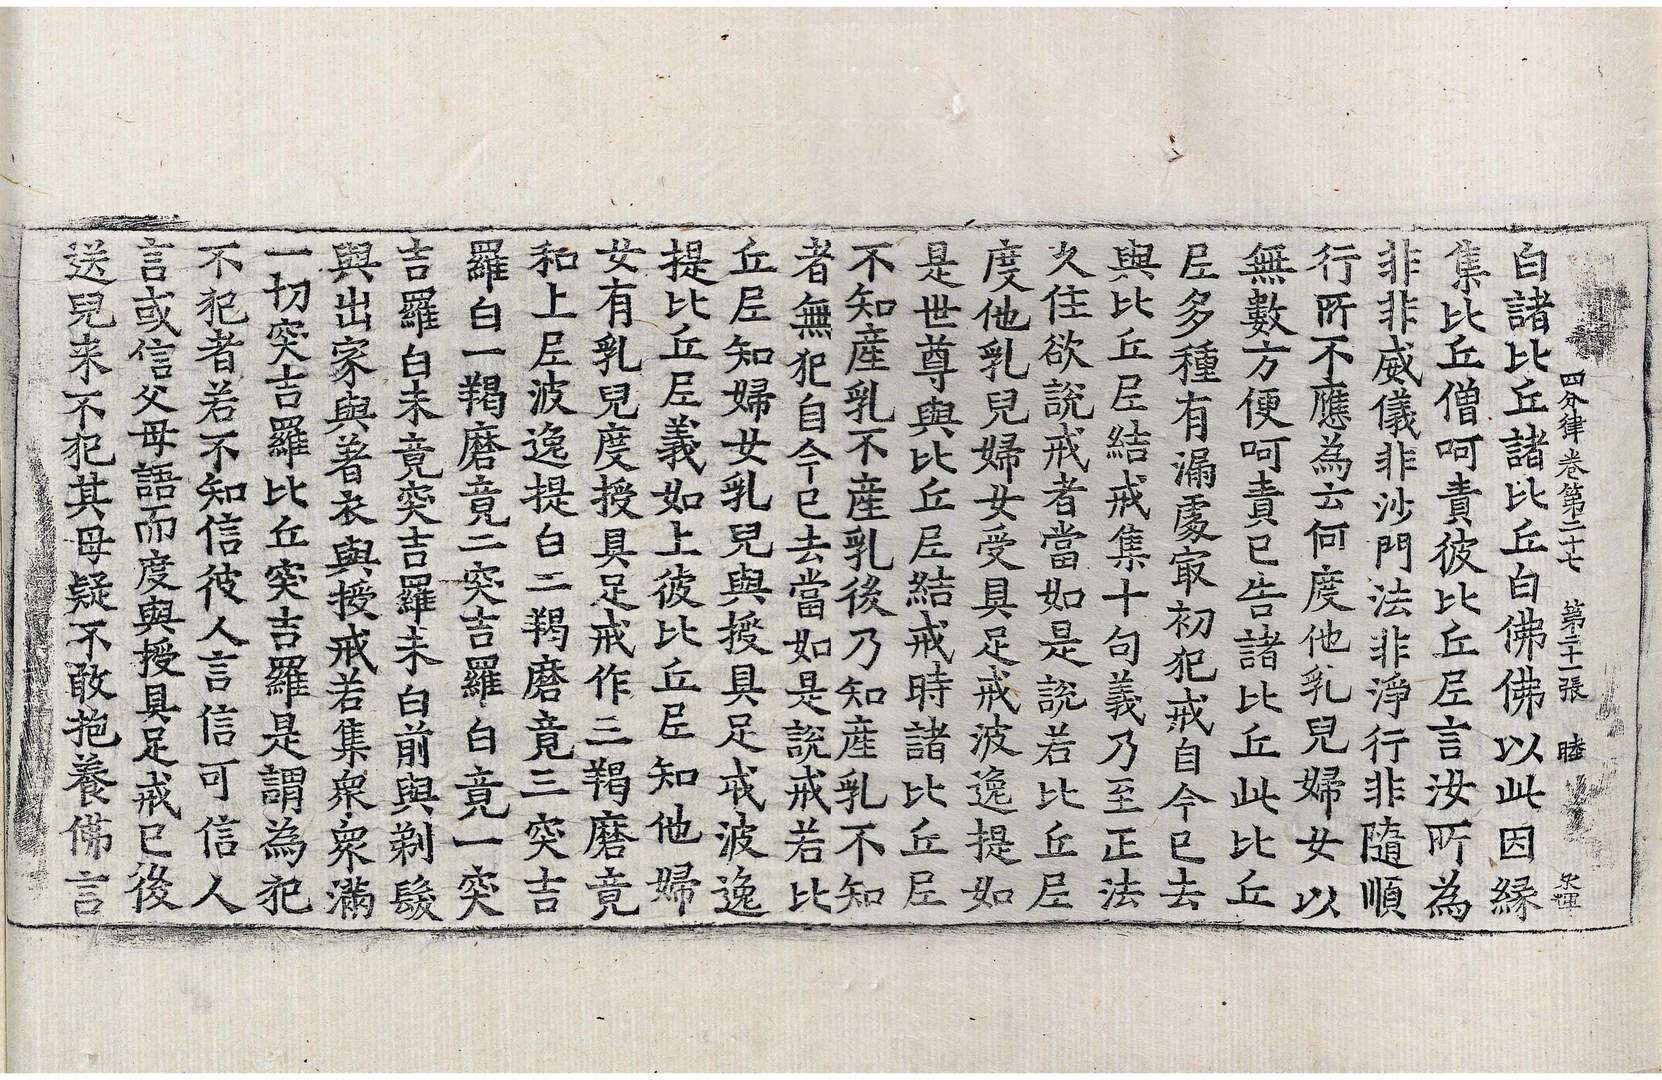 四分律卷第二十七 第三十一張 睦
白諸比丘諸比丘白佛佛以此因緣
集比丘僧呵責彼比丘尼言汝所為
非非威儀非沙門法非淨行非隨順
行所不應為云何度他乳兒婦女以
無數方便呵責已告諸比丘此比丘
尼多種有漏處㝡初犯戒自今已去
與比丘尼結戒集十句義乃至正法
久住欲說戒者當如是說若比丘尼
度他乳兒婦女受具足戒波逸提如
是世尊與比丘尼結戒時諸比丘尼
不知產乳不產乳後乃知產乳不知
者無犯自今已去當如是說戒若比
丘尼知婦女乳兒與授具足戒波逸
提比丘尼義如上彼比丘尼知他婦
女有乳兒度授具足戒作三羯磨竟
和上尼波逸提白二羯磨竟三突吉
羅白一羯磨竟二突吉羅白竟一突
吉羅白未竟突吉羅未白前與剃髮
與出家與著衣與授戒若集眾眾滿
一切突吉羅比丘突吉羅是謂為犯
不犯者若不知信彼人言信可信人
言或信父母語而度與授具足戒已後
送兒来不犯其母疑不敢抱養佛言